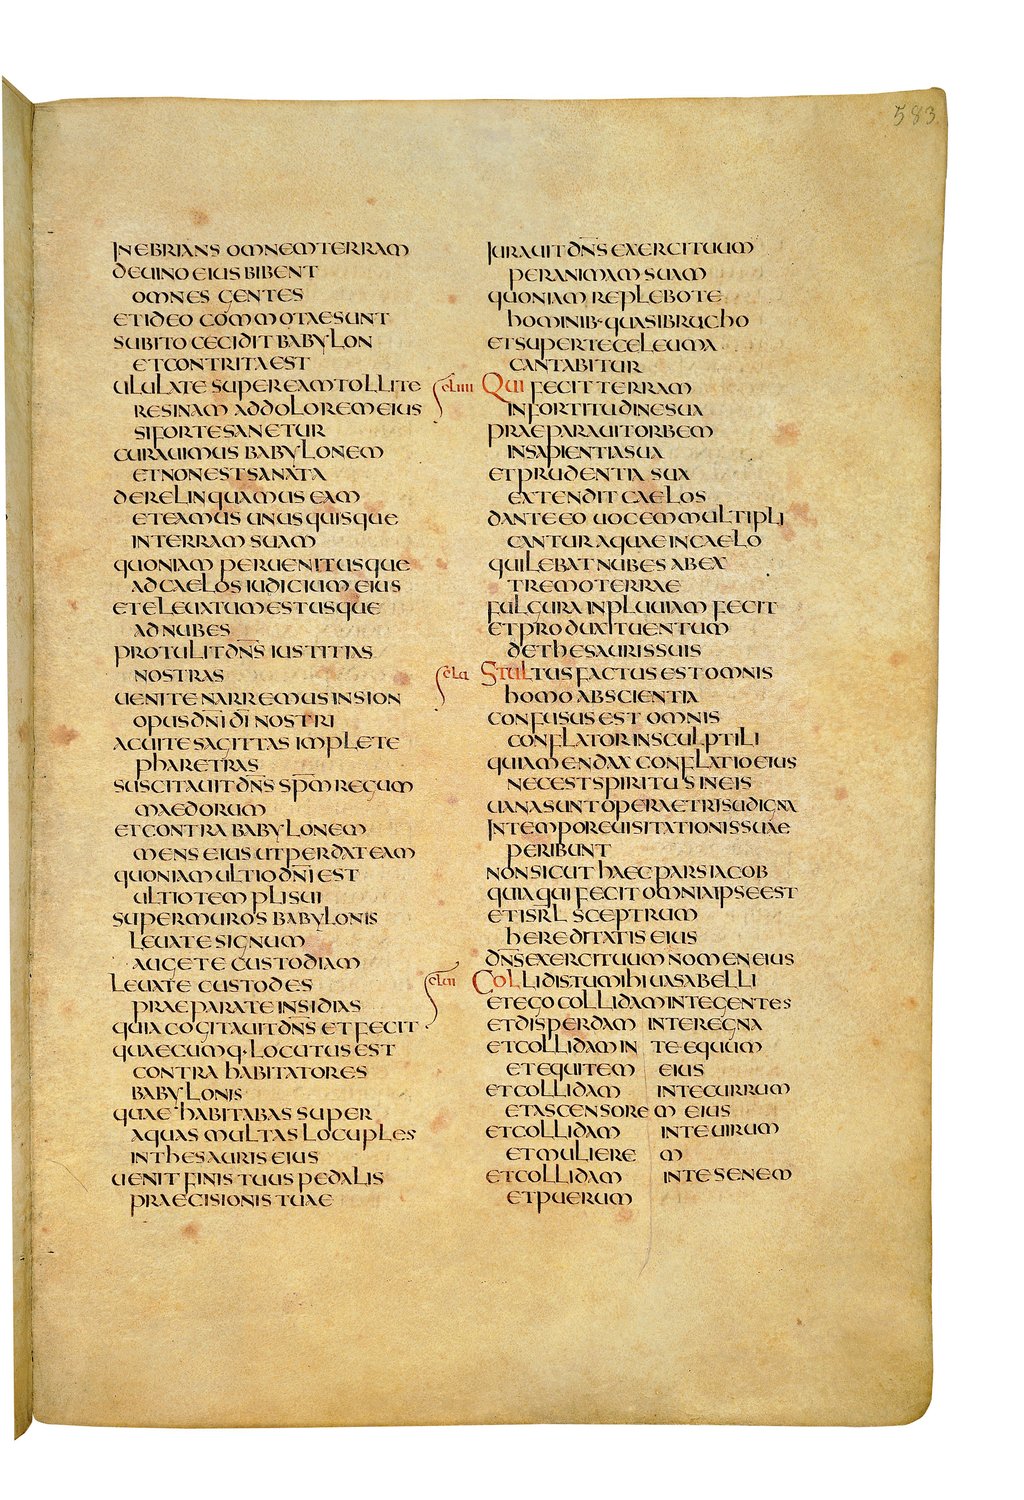 583
INEBRIANS OMNEM TERRAM
DEUINO EIUS BIBENT
OMNES GENTES
ETIDEO COMMOTAE SUNT
SUBITO CECIDIT BABYLON
ET CONTRITA EST
ULULATE SUPER EAM TOLLITE
RESINAM AD DOLOREM EIUS
SI FORTE SANETUR
CURAUIMUS BABYLONEM
ET NON EST SANATA
DERELINQUAMUS EAM
ET EAMUS UNUSQUISQUE
IN TERRAM SUAM
QUONIAM PERUENIT USQUE
AD CAELOS IUDICIUM EIUS
ET ELEUATUM EST USQUE
AD NUBES
PROTULIT DNS IUSTITIAS
NOSTRAS
UENITE NARREMUS IN SION
OPUS DNI DI NOSTRI
ACUITE SAGITTAS IMPLETE
PHARETRAS
SUSCITAUIT DNS SPM REGUM
MAEDORUM
ET CONTRA BABYLONEM
MENS EIUS UT PERDAT EAM
QUONIAM ULTIO DNI EST
ULTIO TEMPLI SUI
SUPER MUROS BABYLONIS
LEUATE SIGNUM
AUGETE CUSTODIAM
LEUATE CUSTODES
PRAEPARATE INSIDIAS
QUIA COGITAUIT DNS ET FECIT
QUAECUMQ· LOCUTUS EST
CONTRA HABITATORES
BABYLONIS
QUAE HABITABAS SUPER
AQUAS MULTAS LOCUPLES
IN THESAURIS EIUS
UENIT FINIS TUUS PEDALIS
PRAECISIONIS TUAE
IURAUIT DNS EXERCITUUM
PER ANIMAM SUAM
QUONIAM REPLEBO TE
HOMINIB· QUASI BRUCHO
ET SUPER TE CELEUMA
CANTABITUR
QUI FECIT TERRAM
IN FORTITUDINE SUA
PRAEPARAUIT ORBEM
IN SAPIENTIA SUA
ET PRUDENTIA SUA
EXTENDIT CAELOS
DANTE EO UOCEM MULTIPLI
CANTUR AQUAE IN CAELO
QUI LEBAT NUBES AB EX
TREMO TERRAE
FULGURA IN PLUUIAM FECIT
ET PRODUXIT UENTUM
DE THESAURIS SUIS
STULTUS FACTUS EST OMNIS
HOMO AB SCIENTIA
CONFUSUS EST OMNIS
CONFLATOR IN SCULPTILI
QUIA MENDAX CONFLATIO EIUS
NEC EST SPIRITUS IN EIS
UANA SUNT OPERA ET RISU DIGNA
IN TEMPORE UISITATIONIS SUAE
PERIBUNT
NON SICUT HAEC PARS IACOB
QUIA QUI FECIT OMNIA IPSE EST
ET ISRL SCEPTRUM
HEREDITATIS EIUS
DNS EXERCITUUM NOMEN EIUS
COLLIDIS TU MIHI UASA BELLI
ET EGO COLLIDAM IN TE GENTES
ET DISPERDAM IN TE REGNA
ET COLLIDAM IN TE EQUUM
ET EQUITEM EIUS
ET COLLIDAM IN TE CURRUM
ET ASCENSOREM EIUS
ET COLLIDAM IN TE UIRUM
ET MULIEREM
ET COLLIDAM IN TE SENEM
ET PUERUM